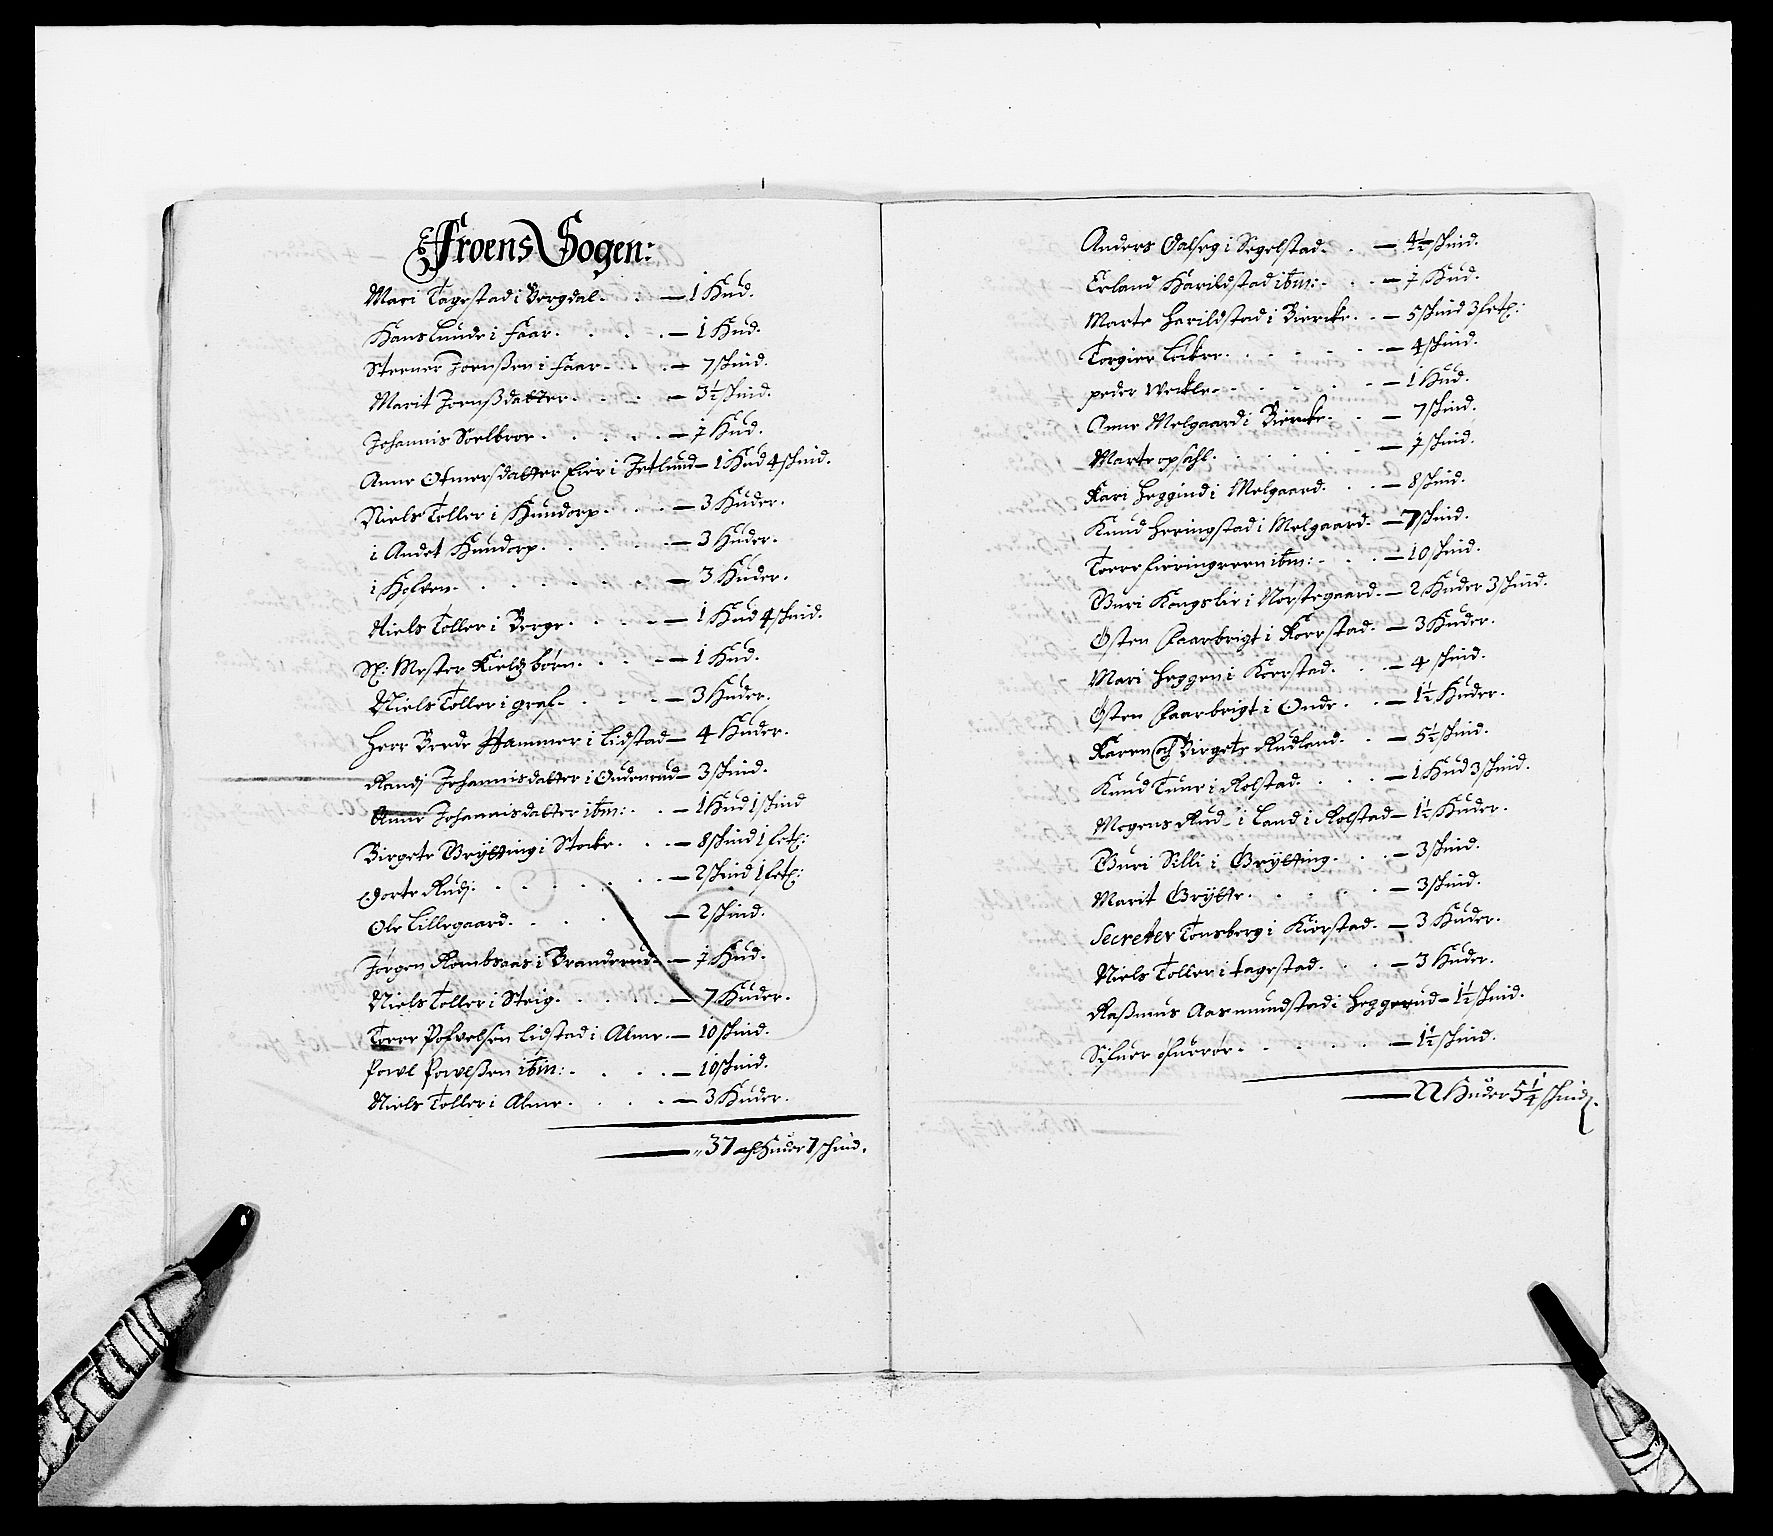 Froens Sogen:
Mari Tagestad i Bergdal. . . — 1 Hud.
Hans Lunde i Faar. . . . . — 1 Hud.
Steener Joenßen i Faar. . . — 7 Skind.
Marit Joenßdatter. . . . — 3½ Skind.
Johannis Soelbroe. . . . . — ½ Hud.
Anne Otmersdatter Eier i Jetlund — 1 Hud 4 Skind.
Niels Toller i Hundorp. . . . — 3 Huder.
i Andet Hundorp. . . . . — 3 Huder.
i Holven. . . . . . — 3 Huder.
Niels Toller i Berge. . . . — 1 Hud 4 Skind.
Sl: Mester Kields børn. . . . — 1 Hud.
Niels Toller i graf. . . . . — 3 Huder.
Herr Brede Hammer i Lidstad — 4 Huder.
Randj Johannisdatter i Oudenrud — 3 Skind.
Anne Johannisdatter ibm: . . — 1 Hud 1 Skind
Birgete Brÿtting i Stocke. . . — 8 Skind 1 Setl:
Dorte Rudj. . . . . . — 2 Skind 1 Setl:
Ole Lillegaard. . . . . — 2 Skind.
Jørgen Rombsaas i Branderud. — ½ Hud.
Niels Toller i Steig. . . . . — 7 Huder.
Torre Pofvelsen Lidstad i Alme. — 10 Skind.
Powl Powlßen ibm: . . . . — 10 Skind.
Niels Toller i Alme. . . . — 3 Huder.
— 37 Huder 7 Skind.
Anders Dalseg i Segelstad. . . — 4½ Skind.
Erland Harildstad ibm: . . . — ½ Hud.
Marte Harildstad i Biercke. . . — 5 Skind 3 Setl:
Torgier Løkre. . . . . — 4 Skind.
peder Weckle. . . . . — 1 Hud.
Anne Melgaard i Biercke. . . — 7 Skind.
Marte opsahl. . . . . — ½ Skind.
Kari Heggind i Melgaard. . . — 8 Skind.
Knud Heringstad i Melgaard. — 7 Skind.
Torre ibm: . . . — 10 Skind.
Guri Kongslie i Nørstegaard. — 2 Huder 3 Skind.
Østen Faarbrigt i Korrstad. — 3 Huder.
Mari Heggen i Korrstad. . . — 4 Skind.
Østen Faarbrigt i Onde. . . — 1½ Huder.
Karen och Birgete Rudland. . — 5½ Skind.
Knud Tune i Rolstad. . . . — 1 Hud 3 Skind.
Mogens Rud i Land i Rolstad — 1½ Huder.
Guri Silli i Grÿtting. . . . — 3 Skind.
Marit Grÿtte. . . . . — 3 Skind.
Secreter Tonsberg i Kiorstad. — 3 Huder.
Niels Toller i Tagestad. . . — 3 Huder.
Raßmus Aasmundstad i Heggerud — 1½ Skind.
Sifuer øfuerør. . . . . — 1½ Skind.
— 22 Huder 5¼ Skind.